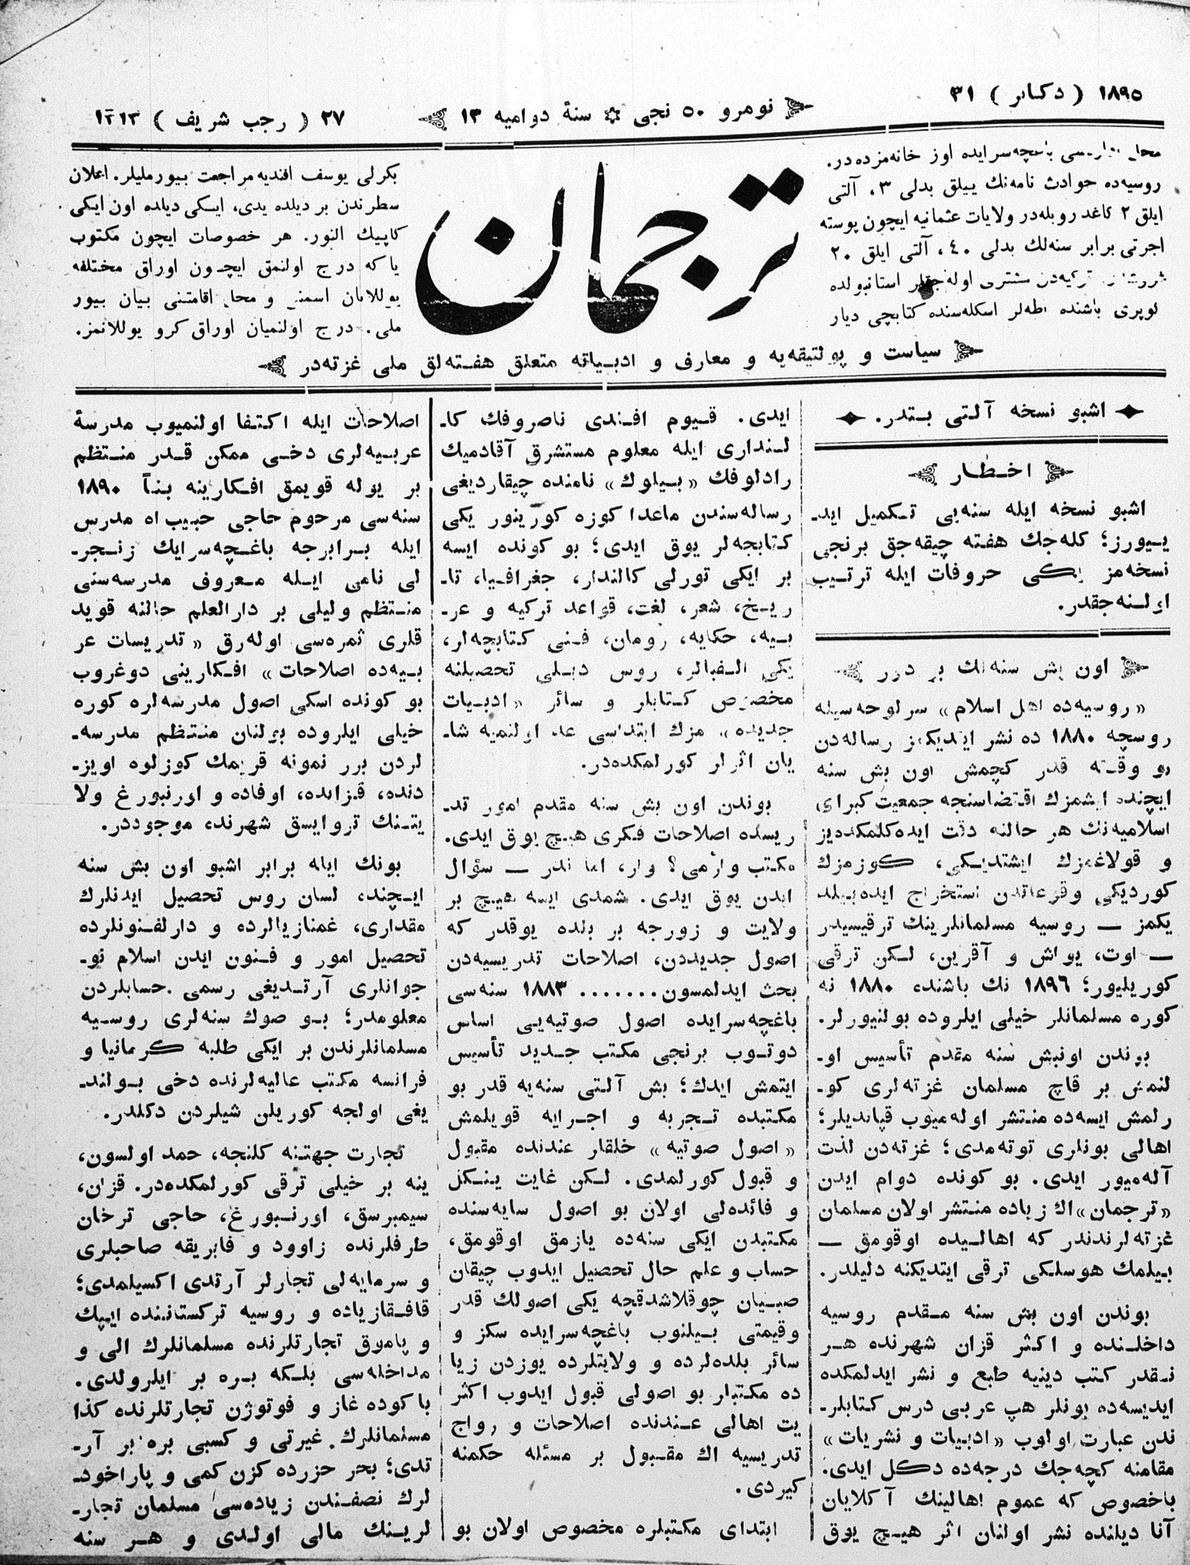 ١٨٩٥ ( دكابر ) ٣١
نومرو ٥٠ نجی ✼ سنۀ دواميه ١٣
٢٧ ( رجب شريف ) ١٣١٣
باغچه‌سرايده اوز خانه‌مزده‌در.
روسيه‌ده حوادث نامه‌نك ييللق بدلی ٣، آلتی
ايلق ٢ كاغد روبله‌در ولايات عثمانيه ايچون پوسته
اجرتی برابر سنه‌لك بدلی ٤٠، آلتی ايلق ٢٠
تركيه‌دن مشتری اوله‌جقلر استانبولده
كوپری باشنده اطه‌لر اسكله‌سنده كتابچی ديار
ترجمان
بكرلی يوسف افنديه مراجعت بيورمليلر. اعلان
سطرندن بر ديلده يدی، ايكی ديلده اون ايكی
كاپيك النور. هر خصوصات ايچون مكتوب
ياكه درج اولنمق ايچون اوراق مختلفه
يوللايان اسمنی و محل اقامتنی بيان بيور
ملی. درج اولنميان اوراق كرو يوللانمز.
سياست و پولتيقه‌يه و معارف و ادبياته متعلق هفته‌لق ملی غزته‌در
اشبو نسخه آلتی بتدر.
اخطار
اشبو نسخه ايله سنه‌يی تكميل ايد-
ييورز؛ كله‌جك هفته چيقه‌جق برنجی
نسخه‌مز يكی حروفات ايله ترتيب
اولنه‌جقدر.
اون بش سنه‌لك بر دور
«روسيه‌ده اهل اسلام» سرلوحه‌سيله
روسچه ١٨٨٠ ده نشر ايتديكمز رساله‌دن
بو وقته قدر كچمش اون بش سنه
ايچنده ايشمزك اقتضاسنجه جمعيت كبرای
اسلاميه‌نك هر حالنه دقت ايده‌كلمكده‌يز
و قولاغمزك ايشتديكی، كوزمزك
كورديكی وقوعاتدن استخراج ايده‌بيلد
يكمز — روسيه مسلمانلرينك ترقيسيدر
— اوت، يواش و آقرين، لكن ترقی
كوريليور؛ ١٨٩٦ نك باشنده، ١٨٨٠ نه
كوره مسلمانلر خيلی ايلروده بولنيورلر.
بوندن اونبش سنه مقدم تأسيس او-
لنمش بر قاچ مسلمان غزته‌لری كو-
رلمش ايسه‌ده منتشر اوله‌ميوب قپانديلر؛
اهالی بونلری توته‌مدی؛ غزته‌دن لذت
آله‌ميور ايدی. بو كونده دوام ايدن
«ترجمان» اك زياده منتشر اولان مسلمان
غزته‌لرندندر كه اهاليده اوقومق —
بيلمك هوسلكی ترقی ايتديكنه دليلدر.
بوندن اون بش سنه مقدم روسيه
داخلنده و اكثر قزان شهرنده هر
نقدر كتب دينيه طبع و نشر ايدلمكده
ايديسه‌ده بونلر هپ عربی درس كتابلر-
ندن عبارت اولوب «ادبيات و نشريات»
مقامنه كچه‌جك درجه‌ده دكل ايدی.
باخصوص كه عموم اهالينك آكلايان
آنا ديلنده نشر اولنان اثر هيچ يوق
ايدی. قيوم افندی ناصروفك كا-
لنداری ايله معلوم مستشرق آقادميك
رادلوفك «بيلوك» نامنده چيقارديغی
رساله‌سندن ماعدا كوزه كورينور يكی
كتابجه‌لر يوق ايدی؛ بو كونده ايسه
بر ايكی تورلی كالندار، جغرافيا، تا-
ريخ، شعر، لغت، قواعد تركيه و عر-
بيه، حكايه، رومان، فنی كتابچه‌لر،
يكی الفبالر، روس ديلی تحصيلنه
مخصوص كتابلر و سائر «ادبيات
جديده» مزك ابتداسی عد اولنميه شا-
يان اثرلر كورلمكده‌در.
بوندن اون بش سنه مقدم امور تد-
ريسده اصلاحات فكری هيچ يوق ايدی.
مكتب وارمی؟ وار، اما ندر — سؤال
ايدن يوق ايدی. شمدی ايسه هيچ بر
ولايت و زورجه بر بلده يوقدر كه
اصول جديددن، اصلاحات تدريسيه‌دن
بحث ايدلمسون....... ١٨٨٣ سنه‌سی
باغچه‌سرايده اصول صوتيه‌يی اساس
دوتوب برنجی مكتب جديد تأسيس
ايتمش ايدك؛ بش آلتی سنه‌يه قدر بو
مكتبده تجربه و اجرايه قويلمش
«اصول صوتيه» خلقلر عندنده مقبول
و قبول كورلمدی. لكن غايت ينكل
و فائده‌لی اولان بو اصول سايه‌سنده
مكتبدن ايكی سنه‌ده يازمق اوقومق،
حساب و علم حال تحصيل ايدوب چيقان
صبيان چوقلاشدقچه يكی اصولك قدر
وقيمتی بيلنوب باغچه‌سرايده سكز و
سائر بلده‌لرده و ولايتلرده يوزدن زيا
ده مكتبلر بو اصولی قبول ايدوب اكثر
يت اهالی عندنده اصلاحات و رواج
تدريسيه اك مقبول بر مسئله حكمنه
كيردی.
ابتدای مكتبلره مخصوص اولان بو
اصلاحات ايله اكتفا اولنميوب مدرسۀ
عربيه‌لری دخی ممكن قدر منتظم
بر يوله قويمق افكارينه بنآ ١٨٩٠
سنه‌سی مرحوم حاجی حبيب اه مدرس
ايله برابرجه باغچه‌سرايك زنجر-
لی نامی ايله معروف مدرسه‌سنی
منتظم وليلی بر دارالعلم حالنه قويد
قلری ثمره‌سی اوله‌رق «تدريسات عر
بيه‌ده اصلاحات» افكارينی دوغروب
بو كونده اسكی اصول مدرسه‌لره كوره
خيلی ايلروده بولنان منتظم مدرسه-
لردن برر نمونه قريمك كوزلوه اويز-
دنده، قزانده، اوفاده و اورنبورغ ولا
يتنك ترويسق شهرنده موجوددر.
بونك ايله برابر اشبو اون بش سنه
ايچنده، لسان روس تحصيل ايدنلرك
مقداری، غمنازيالرده و دارلفنونلرده
تحصيل امور و فنون ايدن اسلام نو-
جوانلری آرتديغی رسمی حسابلردن
معلومدر؛ بو صوك سنه‌لری روسيه
مسلمانلرندن بر ايكی طلبه كرمانيا و
فرانسه مكتب عاليه‌لرنده دخی بولند-
يغی اولجه كوريلن شيلردن دكلدر.
تجارت جهتنه كلنجه، حمد اولسون،
ينه بر خيلی ترقی كورلمكده‌در. قزان،
سيمبرسق، اورنبورغ، حاجی ترخان
طرفلرنده زاوود و فابريقه صاحبلری
و سرمايه‌لی تجارلر آرتدی اكسيلمدی؛
قافقازياده و روسيه تركستاننده ايپك
و پاموق تجارتلرنده مسلمانلرك الی و
مداخله‌سی بلكه بره بر ايلرولدی.
باكوده غاز و فوتوژن تجارتلرنده كذا
مسلمانلرك غيرتی و كسبی بره بر آر-
تدی؛ بحر حزرده كزن كمی و پاراخود-
لرك نصفندن زياده‌سی مسلمان تجار-
لرينك مالی اولدی و هر سنه